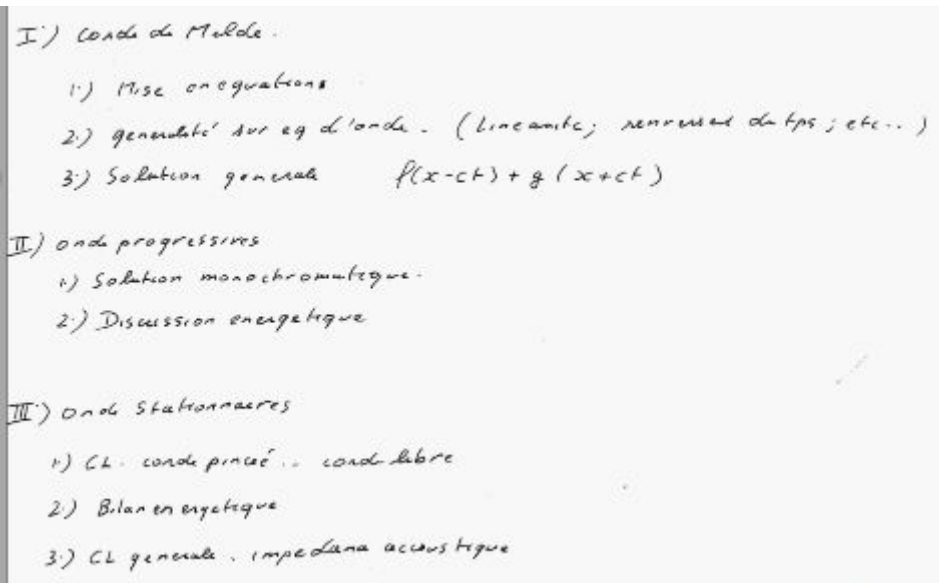 I.) Corde de Melde.
1.) Mise en equations
2.) generalité sur eq d'onde. (Linearite; renversed du tps; etc..)
3.) Solution generale f(x-ct) + g(x+ct)
II) onde progressives
1.) Solution monochromatique.
2.) Discussion energetique
III.) Onde Stationnaires
1.) CL. corde pincée .. corde libre
2.) Bilan energetique
3.) CL generale. impedance accoustique